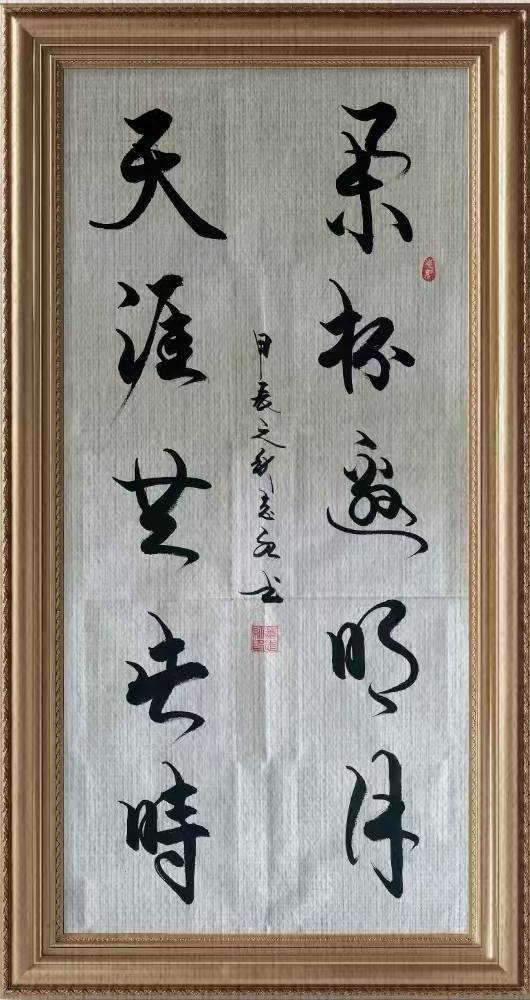 舉杯邀明月
天涯共此時
甲辰之秋志书